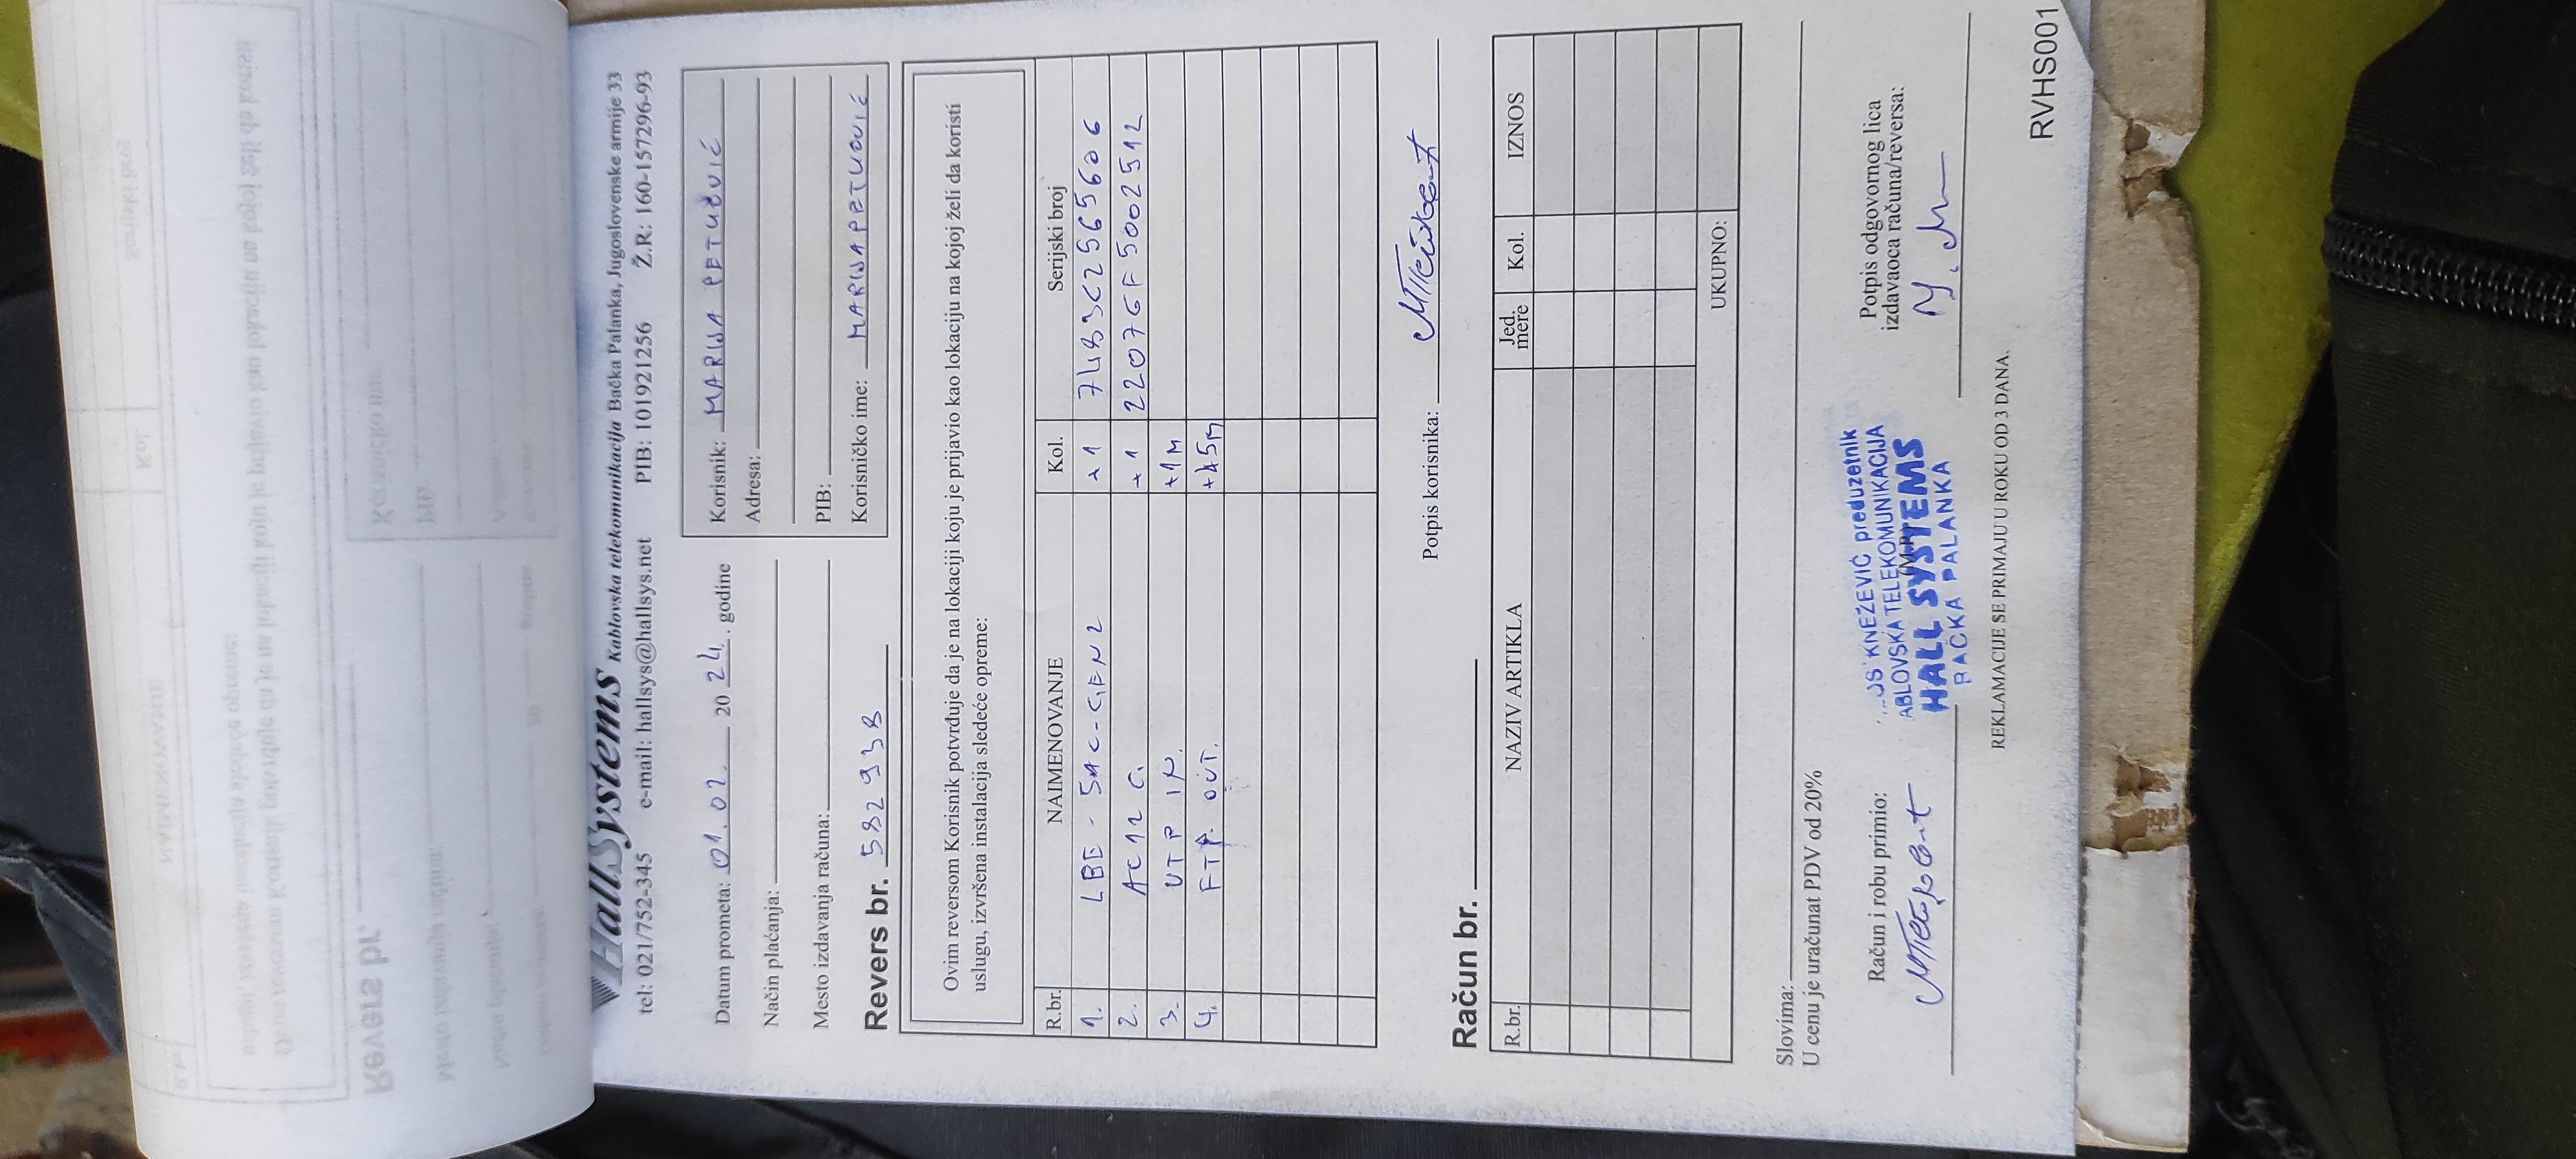 HallSystems Kablovska telekomunikacija Bačka Palanka, Jugoslovenske armije 33
tel: 021/752-345 e-mail: hallsys@hallsys.net PIB: 101921256 Ž.R: 160-157296-93
Datum prometa: 01.02. 2024. godine
Način plaćanja:
Mesto izdavanja računa:
Korisnik: MARIJA PETUOVIĆ
Adresa:
PIB:
Korisničko ime: MARIJAPETUOVIĆ
Revers br. 582938
Ovim reversom Korisnik potvrđuje da je na lokaciji koju je prijavio kao lokaciju na kojoj želi da koristi
uslugu, izvršena instalacija sledeće opreme:
R.br. NAIMENOVANJE Kol. Serijski broj
1. LBE-5AC-GEN2 +1 7483C2565606
2. AC12 C. +1 2207GF5002512
3. UTP IN. +1M
4. FTP OUT. +45M
Potpis korisnika:
Račun br.
R.br. NAZIV ARTIKLA Jed. mere Kol. IZNOS
UKUPNO:
Slovima:
U cenu je uračunat PDV od 20%
Račun i robu primio:
KNEŽEVIĆ preduzetnik
ABLOVSKA TELEKOMUNIKACIJA
HALL SYSTEMS
BAČKA PALANKA
Potpis odgovornog lica
izdavaoca računa/reversa:
REKLAMACIJE SE PRIMAJU U ROKU OD 3 DANA.
RVHS001